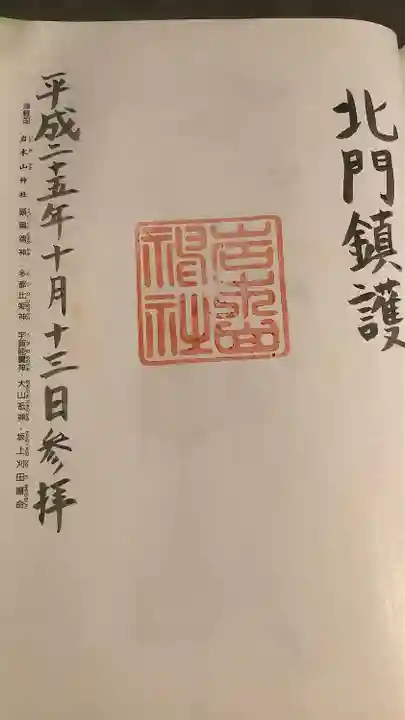 北門鎮護
岩木山神社
平成二十五年十月十三日参拝
津軽国 岩木山神社 顕國魂神 多都比姫神 宇賀能賣神 大山祇神・坂上刈田麿命